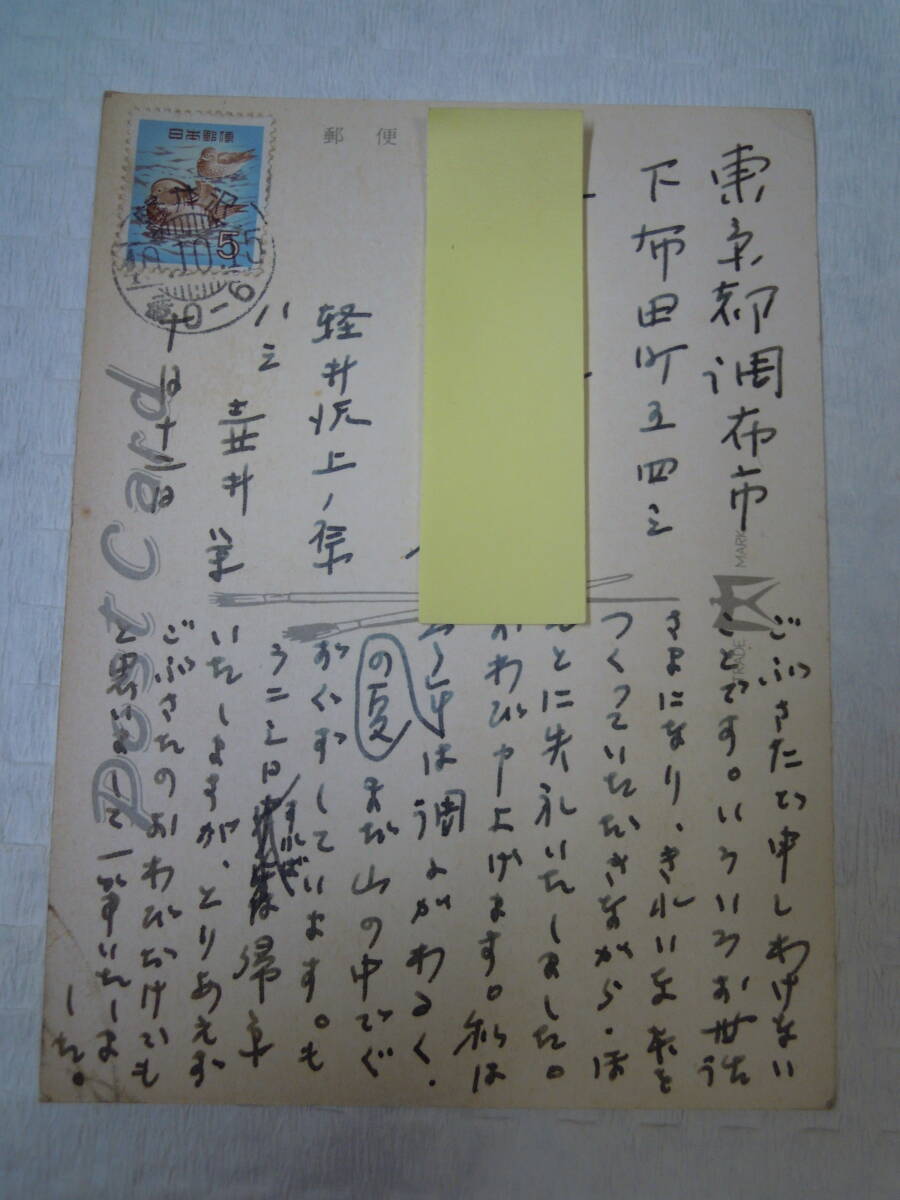 郵便
東京都調布市
下布田町五四三
軽井沢上ノ原
ハ三
壷井栄
十月十二日
日本郵便
5
10-6
Post Card
TRADE MARK
ごぶさたで申しわけない
ことです。いろいろお世話
さまになり、きれいな本を
つくっていただきながら、ほ
んとに失礼いたしました。
おわび申上げます。私は
は調子がわるく、
の夏
まだ山の中でぐ
ずぐずしています。も
う二三日すれば帰京
いたしますが、とりあえず
ごぶさたのおわびだけでも
と思いまして一筆いたしま
した。